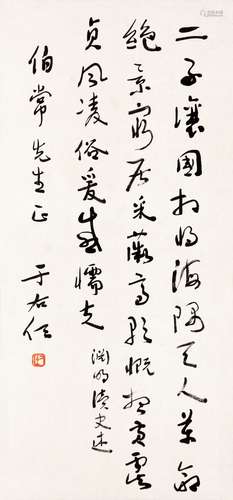 二子讓國相將海隅天人革命
絕景窮居采薇高歌慨想黃虞
貞風凌俗爰感懦夫
淵明讀史述
伯常先生正
于右任